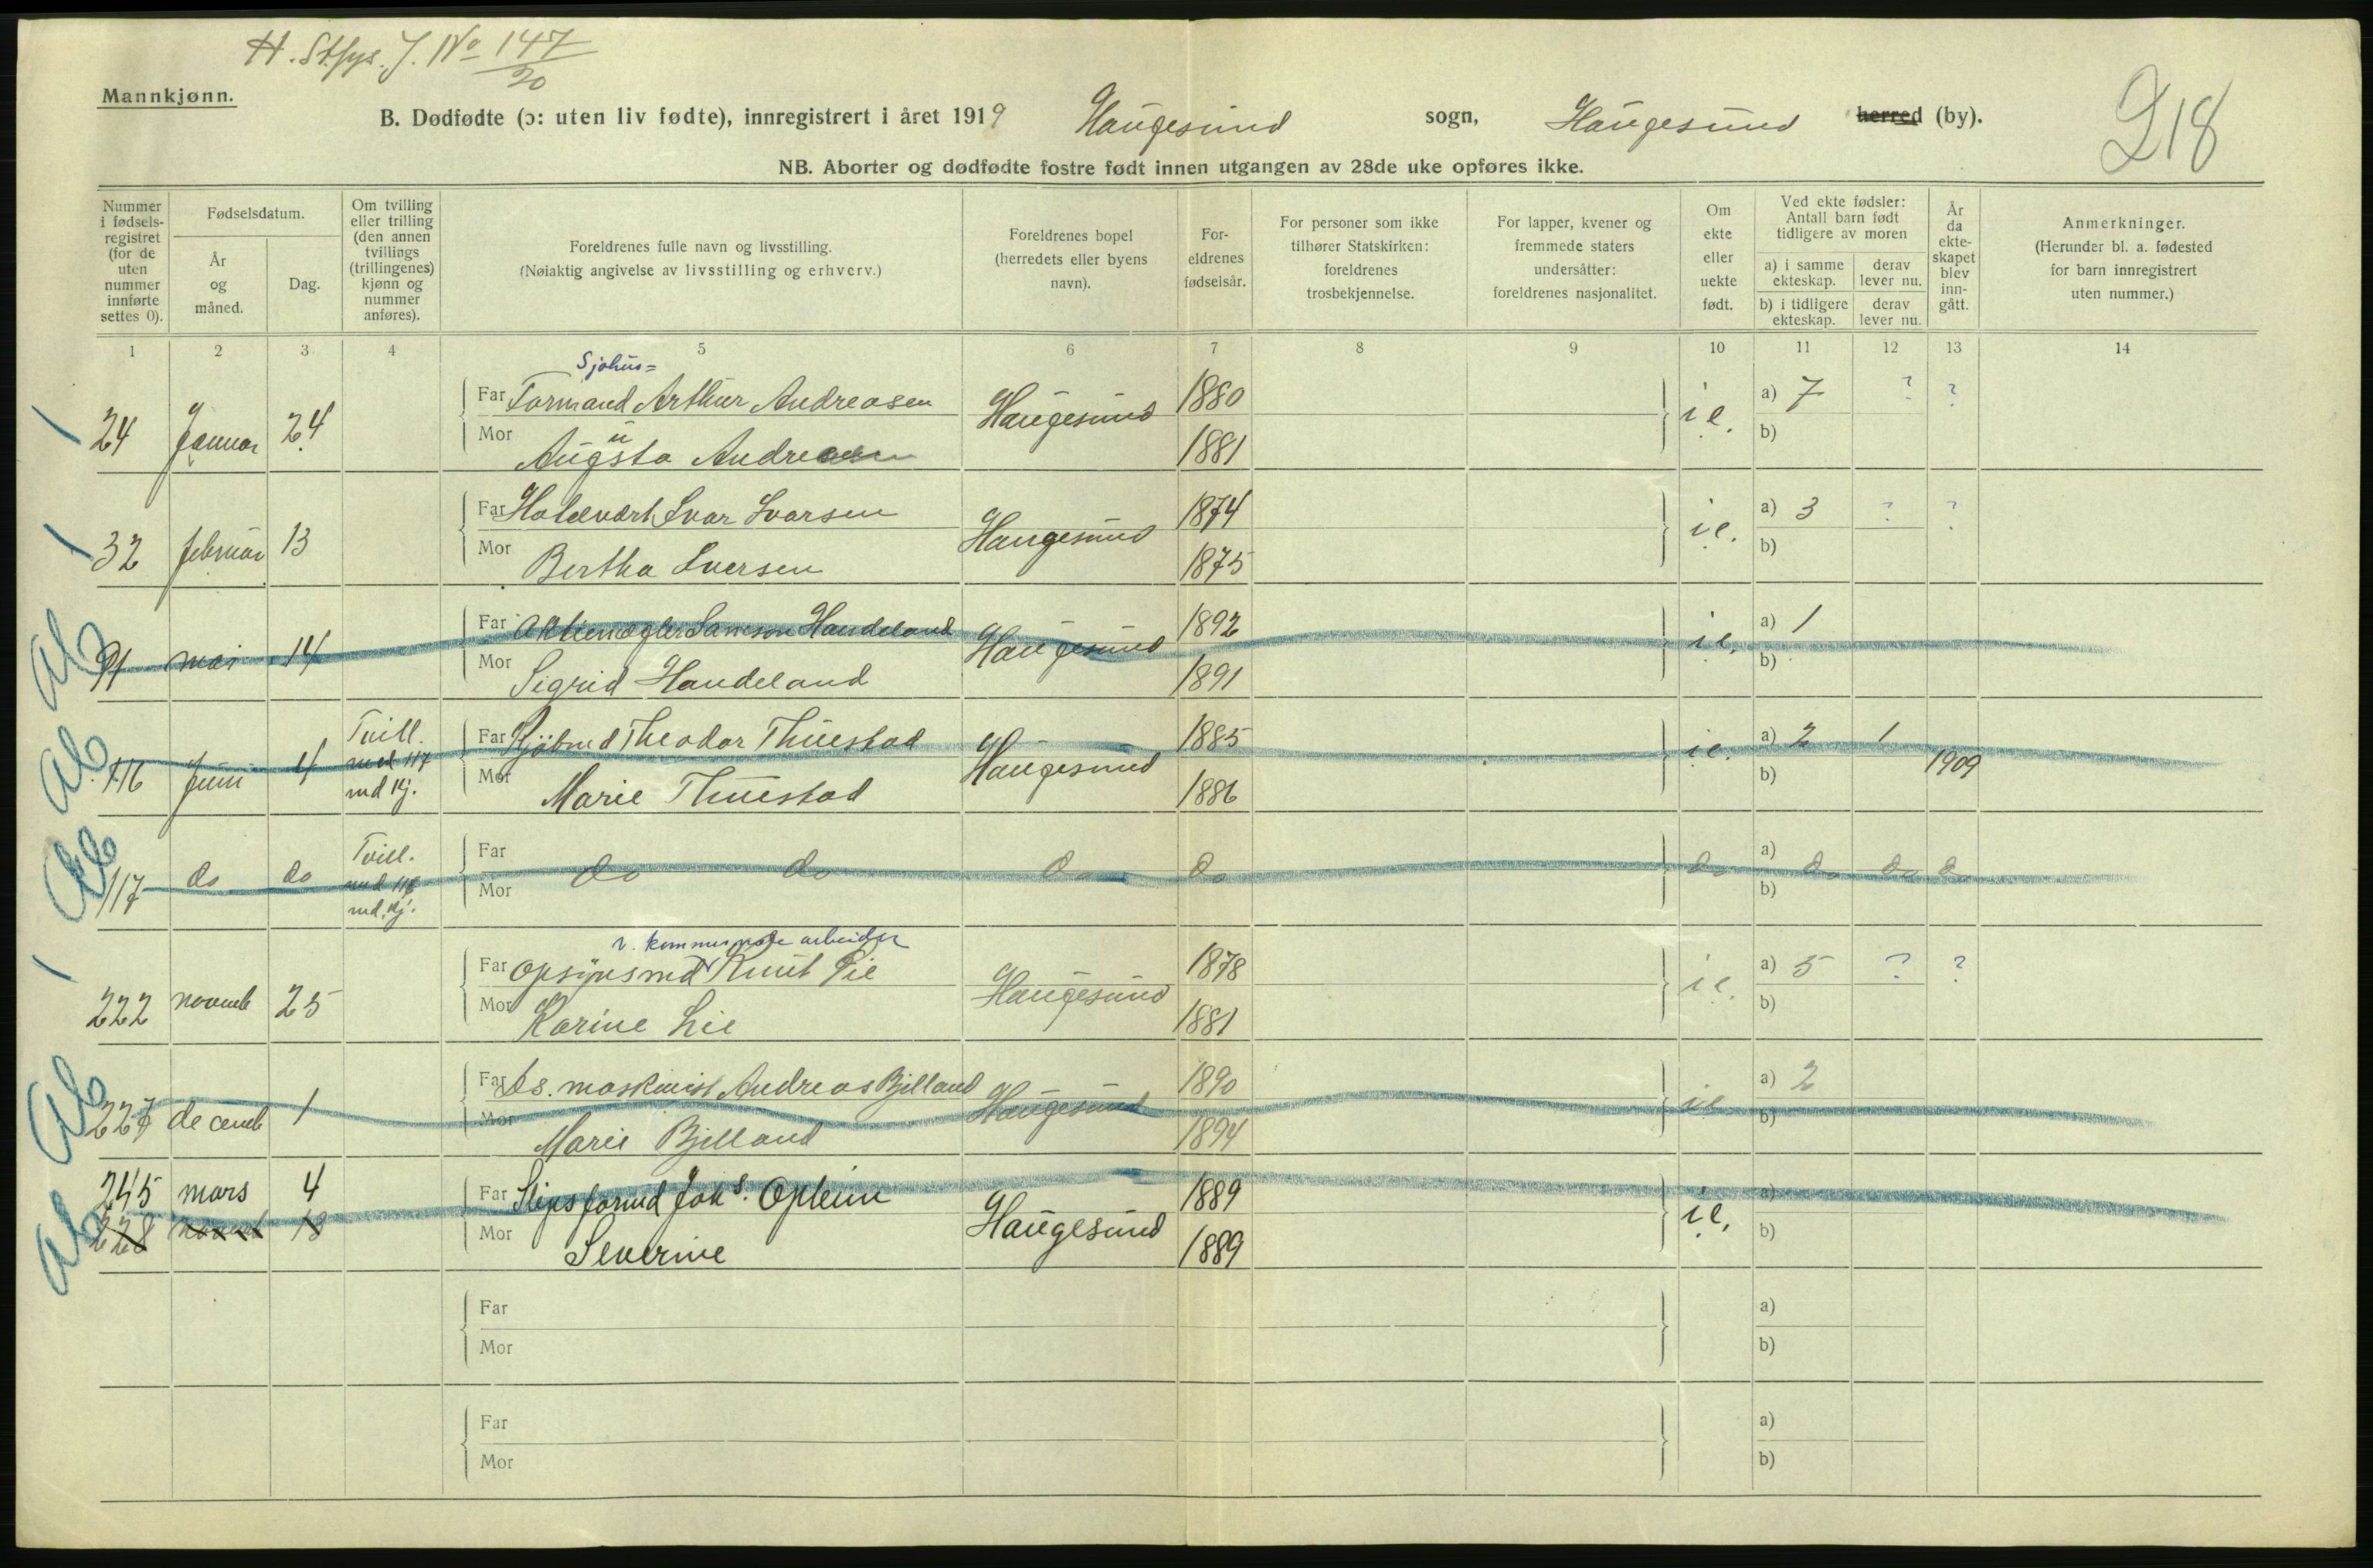 H. Stfys. J. No 147/20
Mannkjønn.
B. Dødfødte (ɔ: uten liv fødte), innregistrert i året 1919 Haugesund sogn, Haugesund herred (by).
218
NB. Aborter og dødfødte fostre født innen utgangen av 28de uke opføres ikke.
Nummer i fødsels-registret (for de uten nummer innførte settes 0).
Fødselsdatum.
År og måned.
Dag.
Om tvilling eller trilling (den annen tvillings (trillingenes) kjønn og nummer anføres).
Foreldrenes fulle navn og livsstilling.
(Nøiaktig angivelse av livsstilling og erhverv.)
Foreldrenes bopel (herredets eller byens navn).
For-eldrenes fødselsår.
For personer som ikke tilhører Statskirken: foreldrenes trosbekjennelse.
For lapper, kvener og fremmede staters undersåtter: foreldrenes nasjonalitet.
Om ekte eller uekte født.
Ved ekte fødsler: Antall barn født tidligere av moren
a) i samme ekteskap.
derav lever nu.
b) i tidligere ekteskap.
derav lever nu.
År da ekte-skapet blev inn-gått.
Anmerkninger.
(Herunder bl. a. fødested for barn innregistrert uten nummer.)
1 2 3 4 5 6 7 8 9 10 11 12 13 14
Sjøhus=
24 Januar 24 Far Formand Arthur Andreasen Haugesund 1880 i e. a) 7 ? ?
Mor Augsta Andreasen 1881 b)
32 februar 13 Far Ivar Ivarsen Haugesund 1874 i e. a) 3 ? ?
Mor Bertha Iversen 1875 b)
Ab 91 mai 14 Far Aktiemægler Samson Handeland Haugesund 1892 i e. a) 1
Mor Sigrid Handeland 1891 b)
Ab 116 Juni 4 Tvill. med 117 md kj. Far Kjøbmd Theodor Thuestad Haugesund 1885 i e. a) 2 1 1909
Mor Marie Thuestad 1886 b)
Ab 117 do do Tvill. med 116 md. kj. Far do do do do do a) do do do
Mor b)
v. kommunale arbeider
222 novemb 25 Far Opsynsmd Knut Lie Haugesund 1878 i e. a) 5 ? ?
Mor Karine Lie 1881 b)
Ab 227 decemb 1 Far As. maskinist Andreas Bjelland Haugesund 1890 i e a) 2
Mor Marie Bjelland 1894 b)
Ab 245 mars 4 Far Slipsformd Johs. Opheim Haugesund 1889 i e. a)
228 novemb 18 Mor Severine 1889 b)
Far a)
Mor b)
Far a)
Mor b)